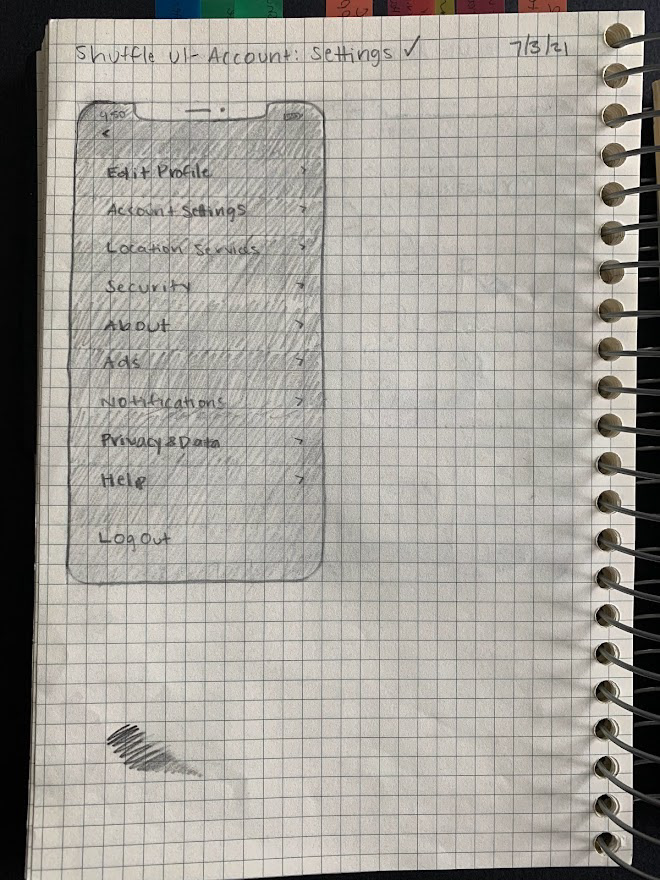 Shuffle UI - Account: Settings ✓
7/3/21
9:50
<
Edit Profile >
Account Settings >
Location Services >
Security >
About >
Ads >
Notifications >
Privacy & Data >
Help >
Log Out